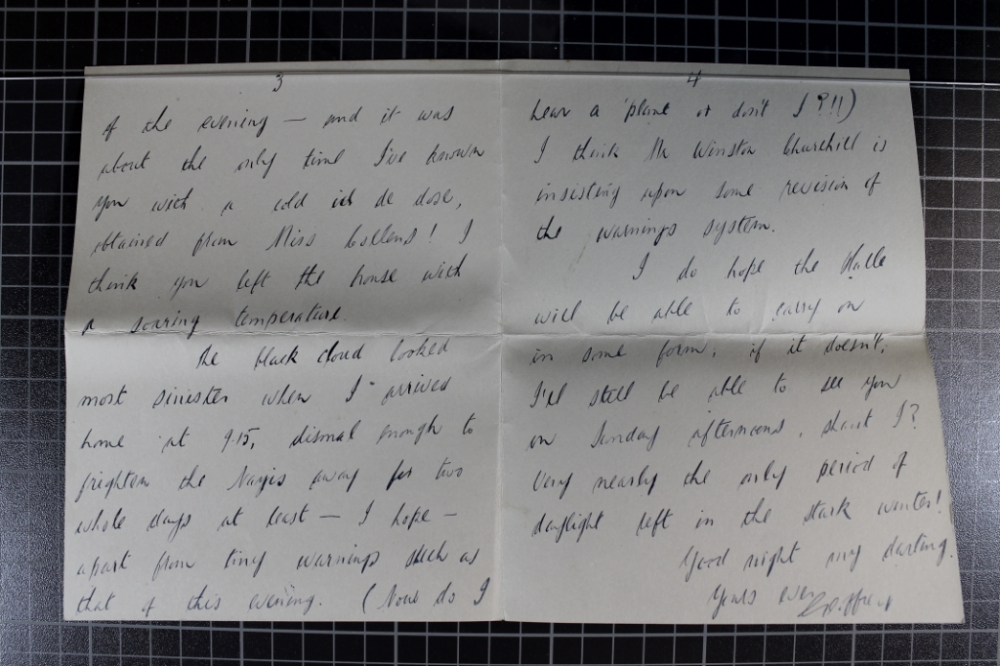 3
of the evening — and it was
about the only time I've known
you with a cold id de dose,
obtained from Miss Collens! I
think you left the house with
a soaring temperature.
The black cloud looked
most sinister when I arrived
home at 9.15, dismal enough to
frighten the Nazis away for two
whole days at least — I hope —
apart from tiny warnings such as
that of this evening. (Now do I
4
hear a 'plane or don't I?!!)
I think Mr Winston Churchill is
insisting upon some revision of
the warnings system.
I do hope the Halle
will be able to carry on
in some form, if it doesn't,
I'll still be able to see you
on Sunday afternoons, shan't I?
Very nearly the only period of
daylight left in the stark winter!
Good night my darling.
Yours ever Geoffrey